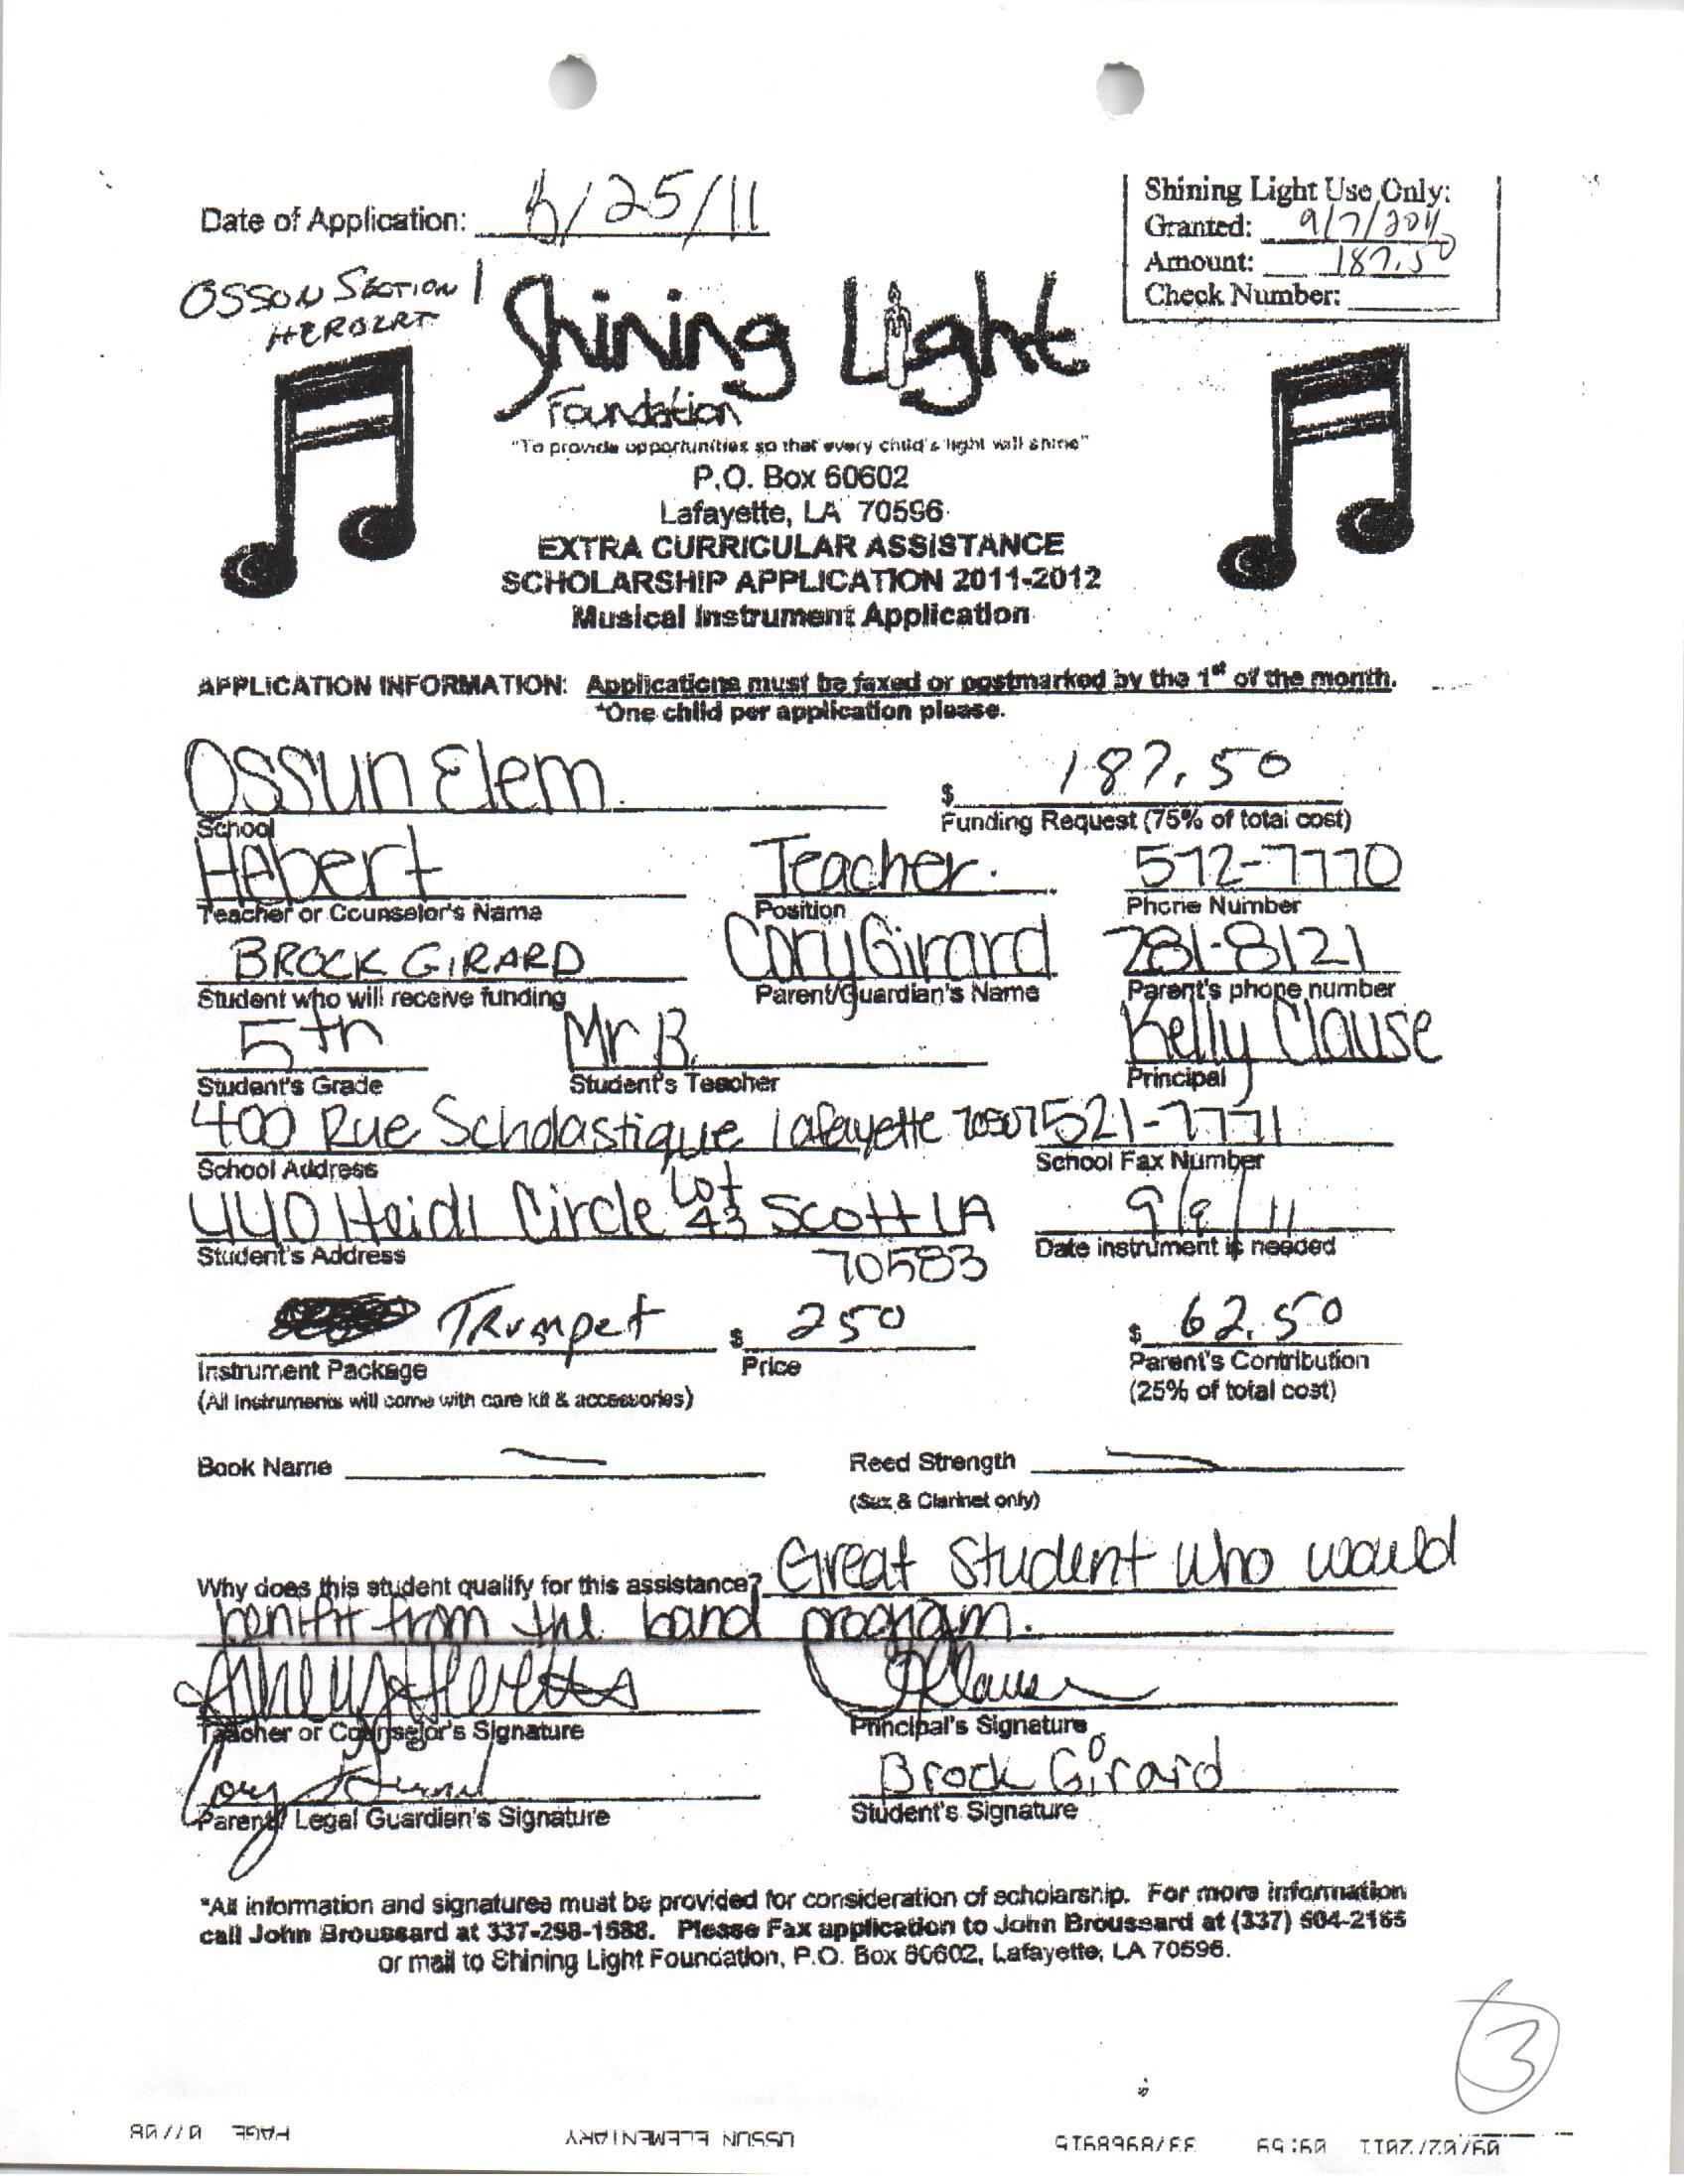 Date of Application: /25/11
Shining Light Use Only:
Granted: 9/7/2011
Amount: 187.50
Check Number:
OSSON SECTION 1
HERBERT
Shining Light
Foundation
"To provide opportunities so that every child's light will shine"
P.O. Box 60602
Lafayette, LA 70596
EXTRA CURRICULAR ASSISTANCE
SCHOLARSHIP APPLICATION 2011-2012
Musical Instrument Application
APPLICATION INFORMATION: Applications must be faxed or postmarked by the 1st of the month.
*One child per application please.
Ossun Elem $ 187.50
School Funding Request (75% of total cost)
Hebert Teacher 572-7770
Teacher or Counselor's Name Position Phone Number
BROCK GIRARD Cory Girard 781-8121
Student who will receive funding Parent/Guardian's Name Parent's phone number
5th Mr B. Kelly Clause
Student's Grade Student's Teacher Principal
400 Rue Scholastique Lafayette 70507 521-7771
School Address School Fax Number
440 Heidi Circle Lot 43 Scott LA 9/8/11
Student's Address 70583 Date instrument is needed
Trumpet $ 250 $ 62.50
Instrument Package Price Parent's Contribution
(All Instruments will come with care kit & accessories) (25% of total cost)
Book Name Reed Strength
(Sax & Clarinet only)
Why does this student qualify for this assistance? Great Student who would
benifit from the band program.
Clause
Teacher or Counselor's Signature Principal's Signature
Cory Girard Brock Girard
Parent/ Legal Guardian's Signature Student's Signature
*All information and signatures must be provided for consideration of scholarship. For more information
call John Broussard at 337-298-1588. Please Fax application to John Broussard at (337) 504-2165
or mail to Shining Light Foundation, P.O. Box 60602, Lafayette, LA 70596.
3
09/02/2011 09:59 OSSUN ELEMENTARY PAGE 07/08